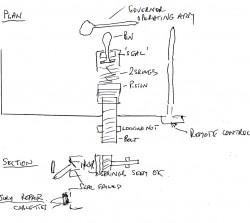 PLAN
GOVERNOR
OPERATING ARM
PIN
'SEAL'
2 SPRINGS
PISTON
LOCKING NUT
BOLT
REMOTE CONTROL
SECTION
SPRINGS SEEM OK
SEAL FAILED
REPAIR